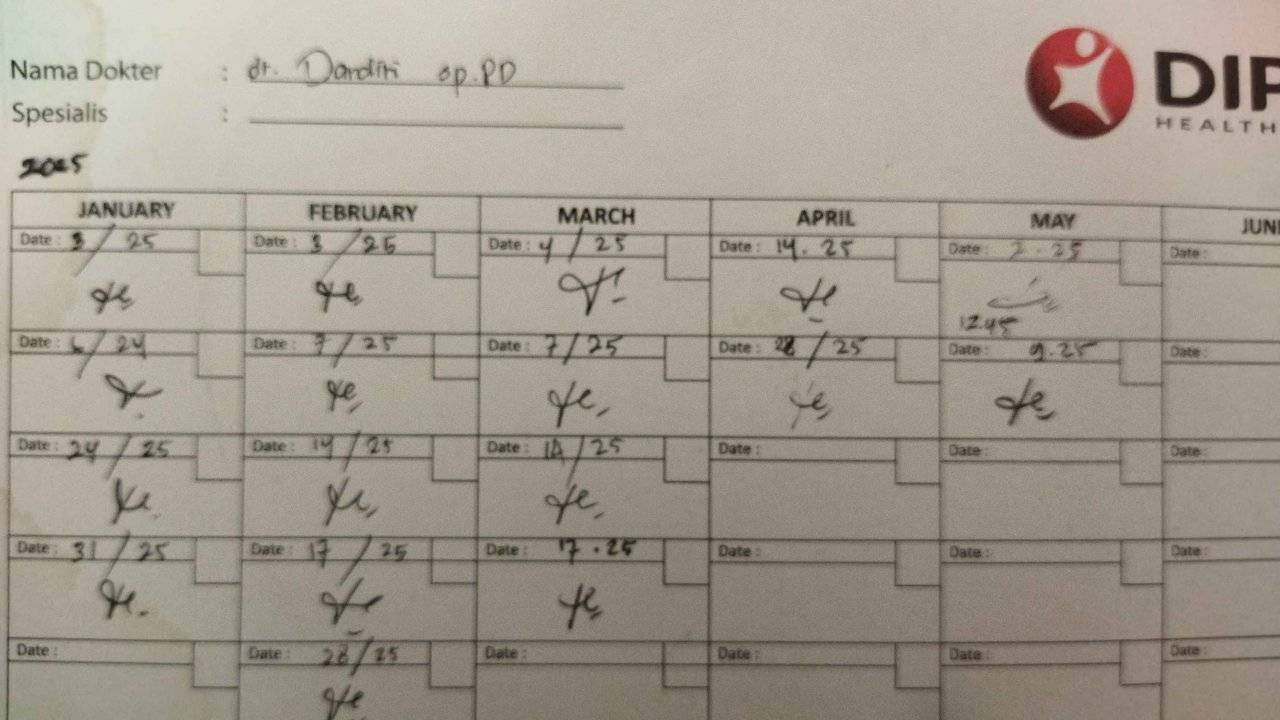 Nama Dokter : dr. Dardiri sp.PD
Spesialis :
DIP
HEALTH
2025
JANUARY FEBRUARY MARCH APRIL MAY JUNE
Date : 3 / 25 Date : 3 / 25 Date : 4 / 25 Date : 14. 25 Date : 2 - 25 Date :
12.45
Date : 6 / 24 Date : 7 / 25 Date : 7 / 25 Date : 28 / 25 Date : 9.25 Date :
Date : 24 / 25 Date : 14 / 25 Date : 14 / 25 Date : Date : Date :
Date : 31 / 25 Date : 17 / 25 Date : 17 . 25 Date : Date : Date :
Date : Date : 28 / 25 Date : Date : Date : Date :